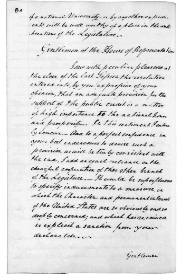 of a national University, or by any other expedients, will be well worthy of a place in the deliberations of the Legislature.
Gentlemen of the House of Representatives
I saw with peculiar pleasure at
the close of the last Session, the resolution
entered into by you expressive of your
opinion, that an adequate provision for the
support of the public credit is a matter
of high importance to the national honor
and prosperity. In this sentiment, I entirely
concur. And to a perfect confidence in
your best endeavors to devise such a
provision as will be truly consistent with
the end, I add an equal reliance on the
cheerful cooperation of the other branch
of the Legislature. It would be superfluous
to specify inducements to a measure in
which the character and permanent interests
of the United States are so obviously and so
deeply concerned; and which has received
so explicit a sanction from your
declaration.
Gentlemen